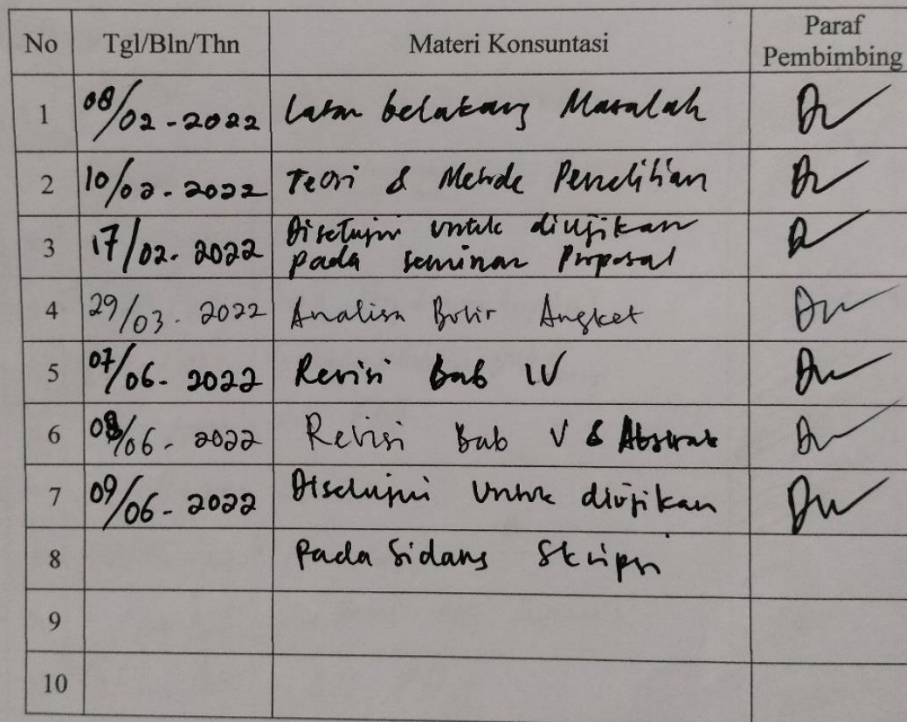 No Tgl/Bln/Thn Materi Konsuntasi Paraf
Pembimbing
1 08/02-2022 Latar belakang Masalah
2 10/02-2022 Teori & Metode Penelitian
3 17/02-2022 Disetujui untuk diujikan
pada seminar Proposal
4 29/03-2022 Analisa Butir Angket
5 07/06-2022 Revisi Bab IV
6 08/06-2022 Revisi Bab V & Abstrak
7 09/06-2022 Disetujui Untuk diujikan
8 Pada Sidang Skripsi
9
10